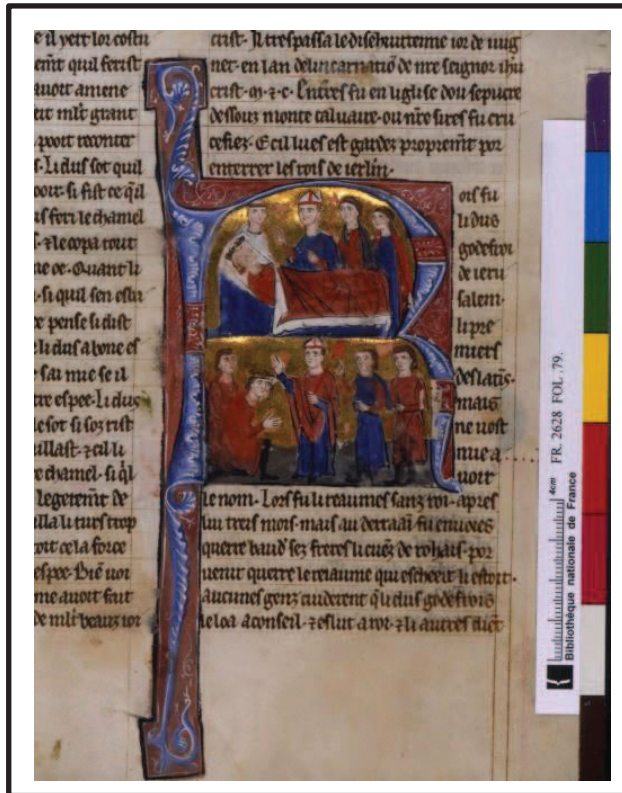 e il yert lor costu
emt quil ferist
auoit amene
tit mlt grant
pooit reconter
s. li dus sot quil
pooit si fist ce qil
us feri le chamel
z le copa tout
me oe. Quant li
si quil sen esbi
ce pense si dist
e li dus a bone es
sai mie se il
tre espee. Li dus
le sot si soz rist
ullast. z cil li
e chamel. si ql
legeremt de
illa li turs trop
toit ce la force
espee. Bie uoir
me auoit fait
de mlt beauz ior
crist. Il trespassa le disehuitteme ior de iuig
net. en lan delincarnatio de nre seignor ihu
crist. m. z c. Entres fu en liglise dou sepucre
desouz monte caluaire. ou nre sires fu cru
cefiez. E cil lues est gardez propremt por
enterrer les rois de ierlm.
R
ois fu
li dus
godefroi
de ieru
salem.
li pre
miers
des latis.
mais
ne uost
mie a
uoir
le nom. Lors fu li reaumes sanz roi. apres
lui treis mois. mais au derraai fu enuoies
querre baud sez freres li cuez de rohais. por
uenir querre le reiaume qui escheoit li estoit.
aucunes genz cuiderent q li dus godefrois
le loa a conseil. z eslut a roi. z li autres diet
FR. 2628 FOL. 79.
4cm
Bibliothèque nationale de France